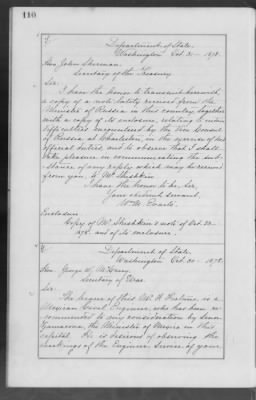 110
Department of State,
Washington Oct. 30 1878.
Hon. John Sherman,
Secretary of the Treasury.
Sir:
I have the honor to transmit herewith
a copy of a note lately received from the
Minister of Russia in this country, together
with a copy of its enclosure, relating to certain
difficulties encountered by the Vice Consul
of Russia at Charleston, in the exercise of his
official duties, and to observe that I shall
take pleasure in communicating the sub-
stance of any reply which may be received
from you, to Mr. Shishkin.
I have the honor to be, Sir,
Your obedient servant,
Wm. M. Evarts.
Enclosure.
Copy of Mr. Shishkin's note of Oct.
1878. and of its enclosure.
Department of State,
Washington Oct. 30 1878.
Hon. George W. McCrary,
Secretary of War.
Sir:
The bearer of this Mr. is a
Mexican Civil Engineer, who has been re-
commended to my consideration by Señor
Zamacona, the Minister of Mexico in this
capital. He is desirous of observing the
workings of the Engineer Service of your